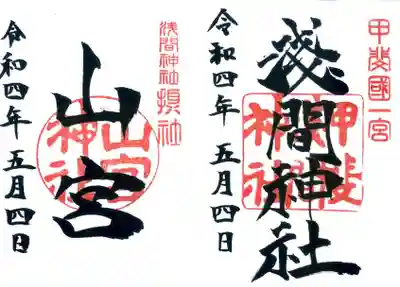 甲斐國一宮
淺間神社
令和四年 五月四日
浅間神社摂社
山宮
山宮神社
令和四年 五月四日